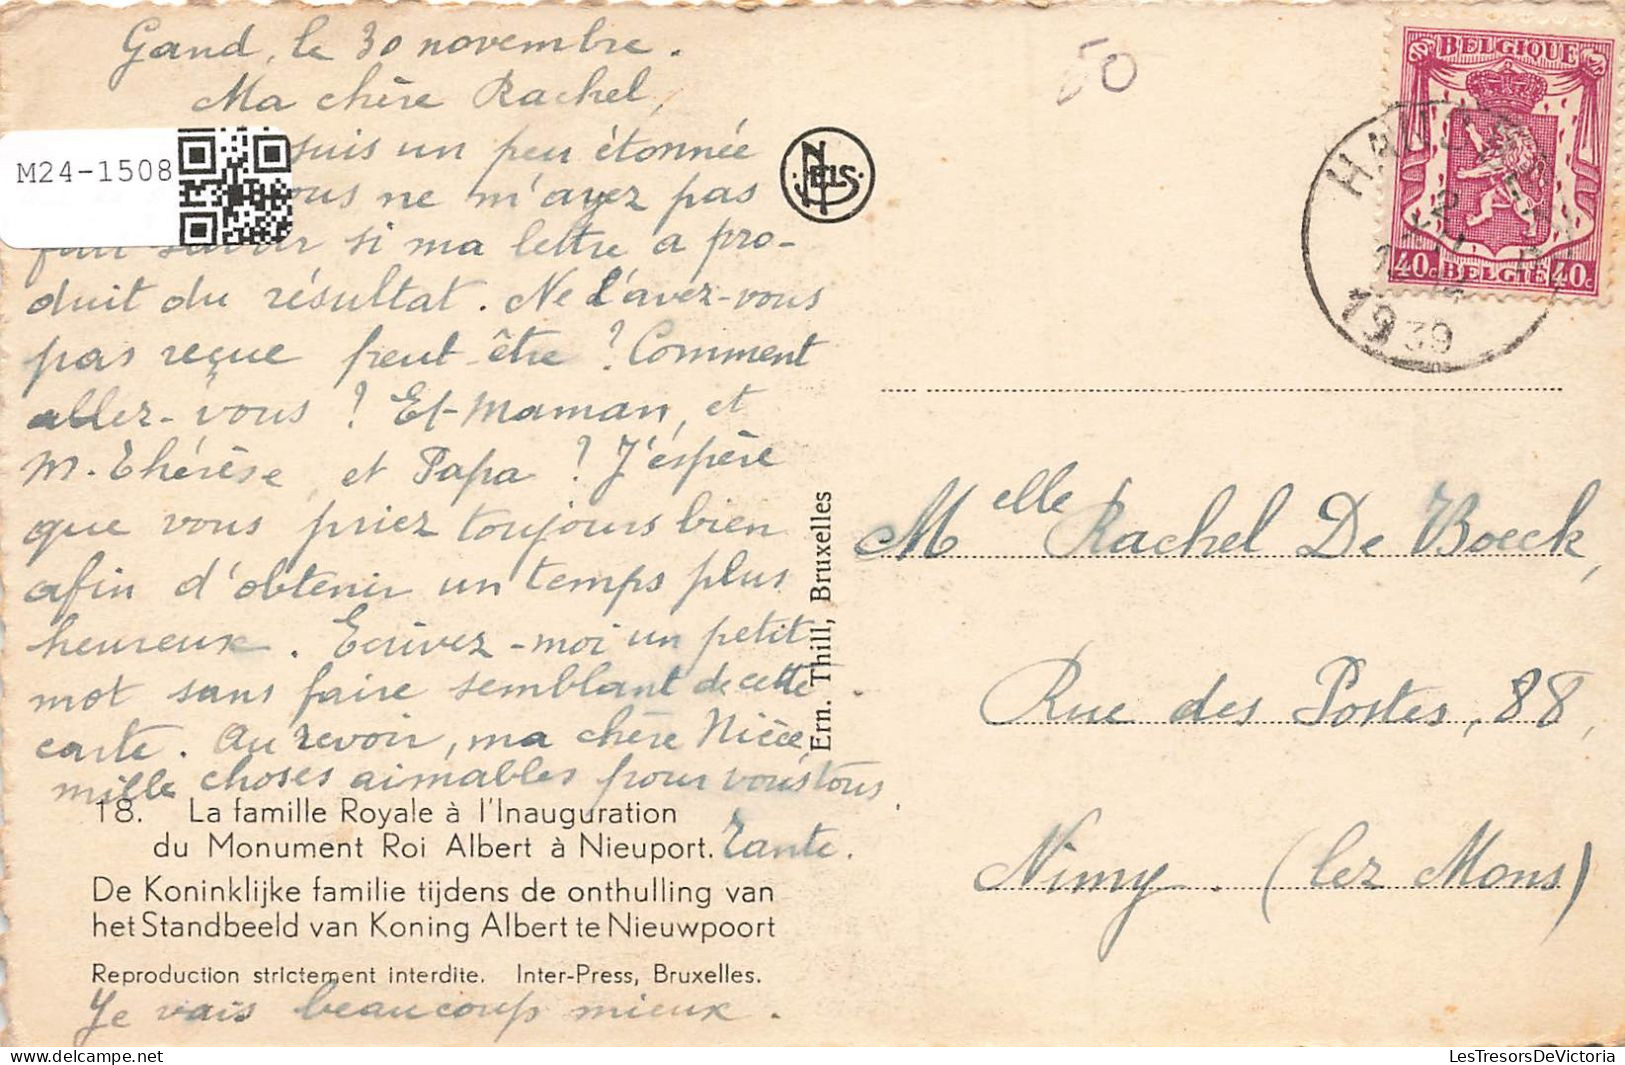 Gand, le 30 novembre.
Ma chère Rachel,
suis un peu étonnée
vous ne m'ayez pas
fait savoir si ma lettre a pro-
duit du résultat. Ne l'avez-vous
pas reçue peut être ? Comment
allez-vous ? Et Maman, et
M. Thérèse et Papa ? J'éspère
que vous priez toujours bien
afin d'obtenir un temps plus
heureux. Ecrivez-moi un petit
mot sans faire semblant de cette
carte. Au revoir, ma chère Nièce,
mille choses aimables pour vous tous.
Tante.
18. La famille Royale à l'Inauguration
du Monument Roi Albert à Nieuport.
De Koninklijke familie tijdens de onthulling van
het Standbeeld van Koning Albert te Nieuwpoort
Reproduction strictement interdite. Inter-Press, Bruxelles.
Je vais beaucoup mieux.
M24-1508
NELS
Ern. Thill, Bruxelles
50
BELGIQUE
40c BELGIË 40c
1939
Melle Rachel De Boeck,
Rue des Postes, 88,
Nimy. (lez Mons)
LesTresorsDeVictoria